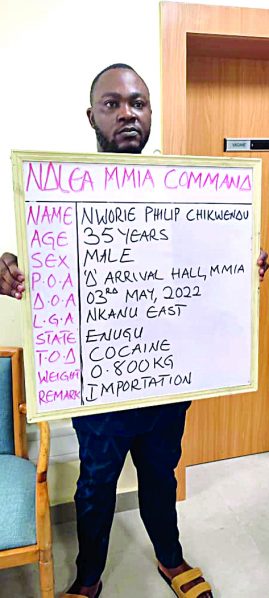 NDLEA MMIA COMMAND
NAME NWORIE PHILIP CHIKWENDU
AGE 35 YEARS
SEX MALE
P.O.A 'D' ARRIVAL HALL, MMIA
D.O.A 03RD MAY, 2022
L.G.A NKANU EAST
STATE ENUGU
T.O.D COCAINE
WEIGHT 0.800KG
REMARK IMPORTATION